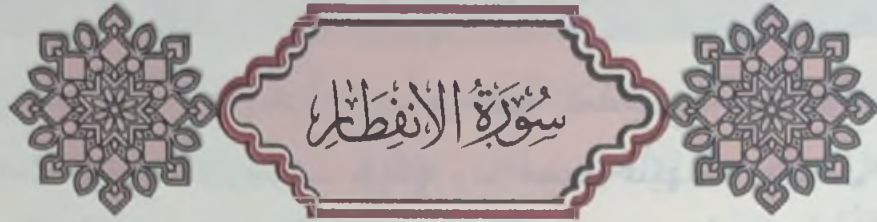 سُورَةُ الانفِطَارِ